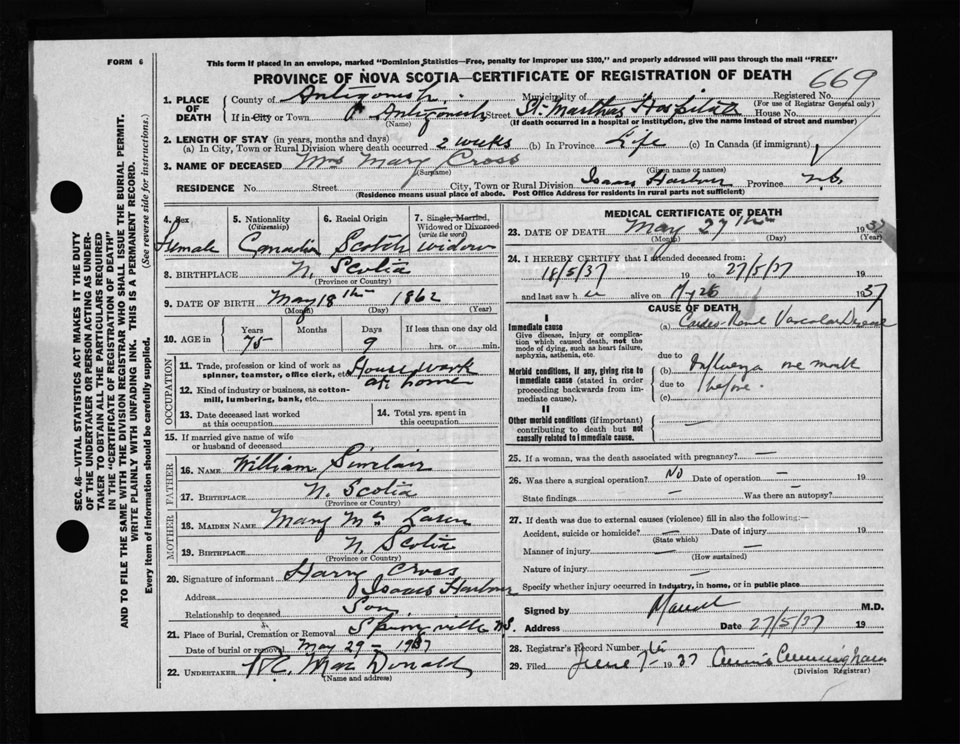 FORM 6
This form if placed in an envelope, marked "Dominion Statistics—Free, penalty for improper use $300," and properly addressed will pass through the mail "FREE"
PROVINCE OF NOVA SCOTIA—CERTIFICATE OF REGISTRATION OF DEATH
669
1. PLACE OF DEATH
County of Antigonish Municipality of Registered No.
(For use of Registrar General only)
If in City or Town Antigonish Street St. Marthas Hospital House No.
(Name) (If death occurred in a hospital or institution, give the name instead of street and number)
2. LENGTH OF STAY (in years, months and days)
(a) In City, Town or Rural Division where death occurred 2 weeks (b) In Province Life (c) In Canada (if immigrant)
3. NAME OF DECEASED Mrs Mary Cross
(Surname) (Given name or names)
RESIDENCE No. Street City, Town or Rural Division Isaacs Harbour Province N.S.
(Residence means usual place of abode. Post Office Address for residents in rural parts not sufficient)
4. Sex
Female
5. Nationality
(Citizenship)
Canadian
6. Racial Origin
Scotch
7. Single, Married,
Widowed or Divorced
(write the word)
widow
8. BIRTHPLACE N. Scotia
(Province or Country)
9. DATE OF BIRTH May 18th 1862
(Month) (Day) (Year)
10. AGE in
Years Months Days If less than one day old
75 9 hrs. or min.
OCCUPATION
11. Trade, profession or kind of work as
spinner, teamster, office clerk, etc. Housework
12. Kind of industry or business, as cotton-
mill, lumbering, bank, etc. at home
13. Date deceased last worked
at this occupation
14. Total yrs. spent in
this occupation
15. If married give name of wife
or husband of deceased
FATHER
16. NAME William Sinclair
17. BIRTHPLACE N. Scotia
(Province or Country)
MOTHER
18. MAIDEN NAME Mary Mc Laren
19. BIRTHPLACE N. Scotia
(Province or Country)
20. Signature of informant Harry Cross
Address Isaacs Harbour
Relationship to deceased Son
21. Place of Burial, Cremation or Removal Springville N.S.
Date of burial or removal May 29 - 1937
22. UNDERTAKER R.C. MacDonald
(Name and address)
MEDICAL CERTIFICATE OF DEATH
23. DATE OF DEATH May 27th 1937
(Month) (Day) (Year)
24. I HEREBY CERTIFY that I attended deceased from:
18/5/37 19 to 27/5/37 19
and last saw h er alive on My 26 1937
CAUSE OF DEATH
I
Immediate cause
Give disease, injury or complica-
tion which caused death, not the
mode of dying, such as heart failure,
asphyxia, asthenia, etc.
(a) Cardio-Renal Vascular Disease
due to
Morbid conditions, if any, giving rise to
immediate cause (stated in order
proceeding backwards from im-
mediate cause).
(b) Influenza one month
due to before.
(c)
II
Other morbid conditions (if important)
contributing to death but not
causally related to immediate cause.
—
25. If a woman, was the death associated with pregnancy? —
26. Was there a surgical operation? No Date of operation — 19
State findings — Was there an autopsy? —
27. If death was due to external causes (violence) fill in also the following:—
Accident, suicide or homicide? — Date of injury — 19
(State which)
Manner of injury —
(How sustained)
Nature of injury —
Specify whether injury occurred in industry, in home, or in public place
Signed by M.D.
Address Date 27/5/37 19
28. Registrar's Record Number
29. Filed June 7 1937 Cunningham
(Division Registrar)
SEC. 46—VITAL STATISTICS ACT MAKES IT THE DUTY
OF THE UNDERTAKER OR PERSON ACTING AS UNDER-
TAKER TO OBTAIN ALL THE PARTICULARS REQUIRED
IN THE "CERTIFICATE OF REGISTRATION OF DEATH"
AND TO FILE THE SAME WITH THE DIVISION REGISTRAR WHO SHALL ISSUE THE BURIAL PERMIT.
WRITE PLAINLY WITH UNFADING INK. THIS IS A PERMANENT RECORD.
Every item of information should be carefully supplied. (See reverse side for instructions.)